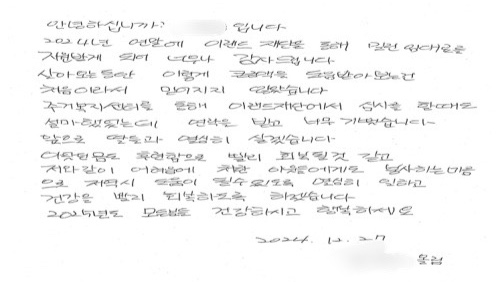 안녕하십니까? 입니다
2024년 연말에 이랜드 재단을 통해 밀린 임대료를
지원받게 되어 너무나 감사드립니다
살아오는동안 이렇게 큰혜택을 도움받아보는건
처음이라서 믿어지지 않았습니다
주거복지센터를 통해 이랜드재단에서 심사를 할때도
설마했었는데 연락을 받고 너무 기뻤습니다
앞으로 딸들과 열심히 살겠습니다
다욱던몸도 후련함으로 빨리 회복될것 같고
저와같이 어려움에 처한 이웃들에게도 봉사하는마음
으로 저역시 도움이 필수있도록 열심히 일하고
건강을 빨리 회복하도록 하겠습니다
2025년도 모든분들 건강하시고 행복하세요
2024. 12. 27
올림